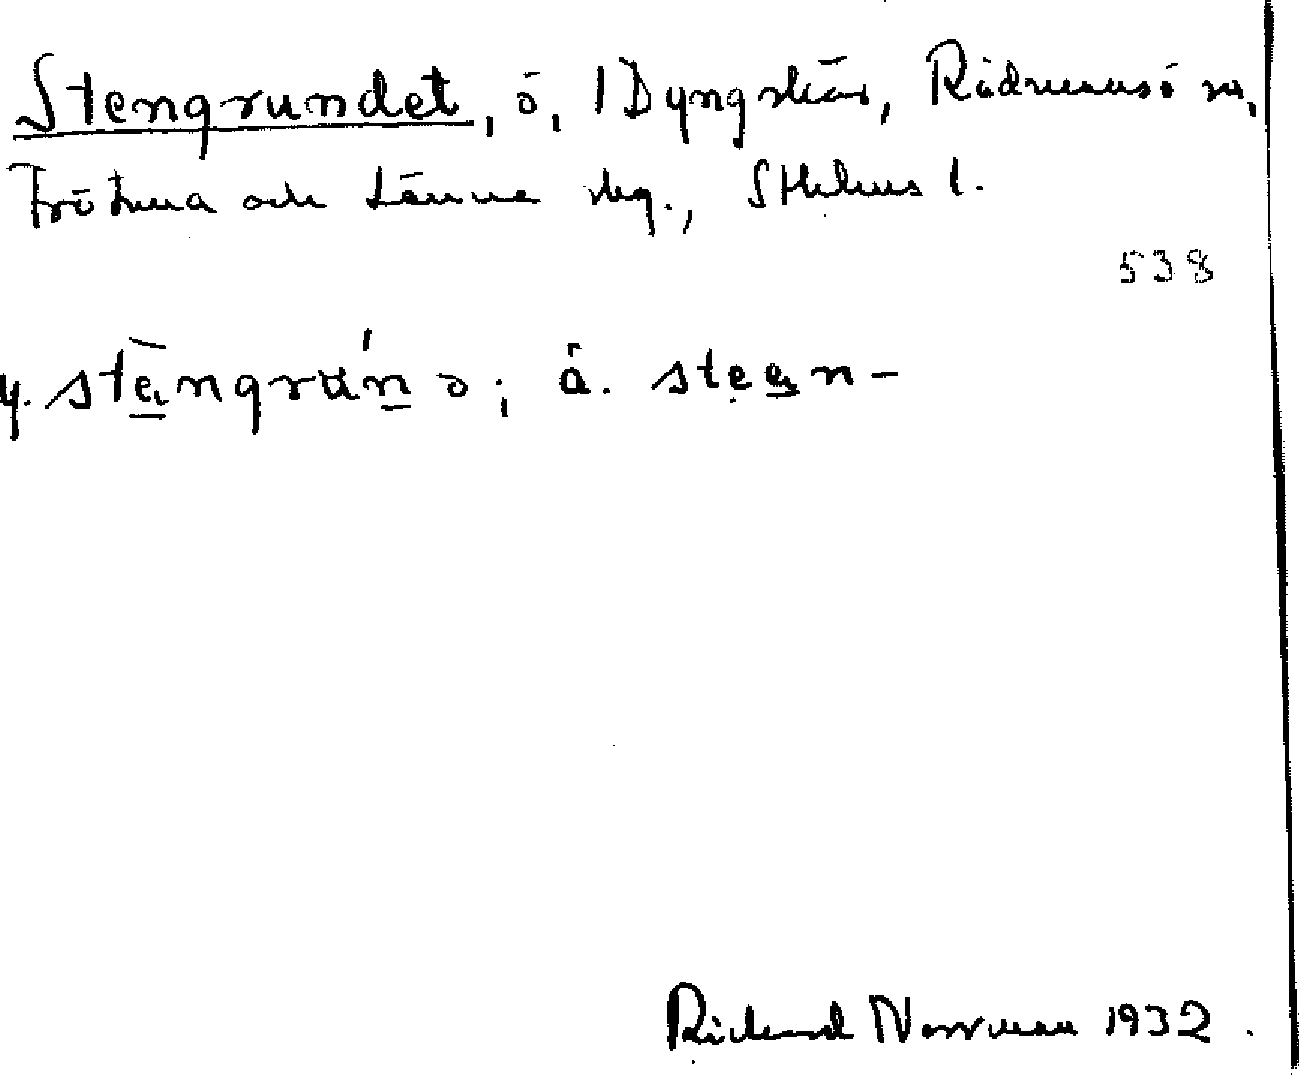 Stengrundet, ö, 1 Dyngskär, Rådmansö sn,
Frötuna och Länna skg., Sthlms l.
538
y. stèngrún ə; å. steen-
Richard Norrman 1932.